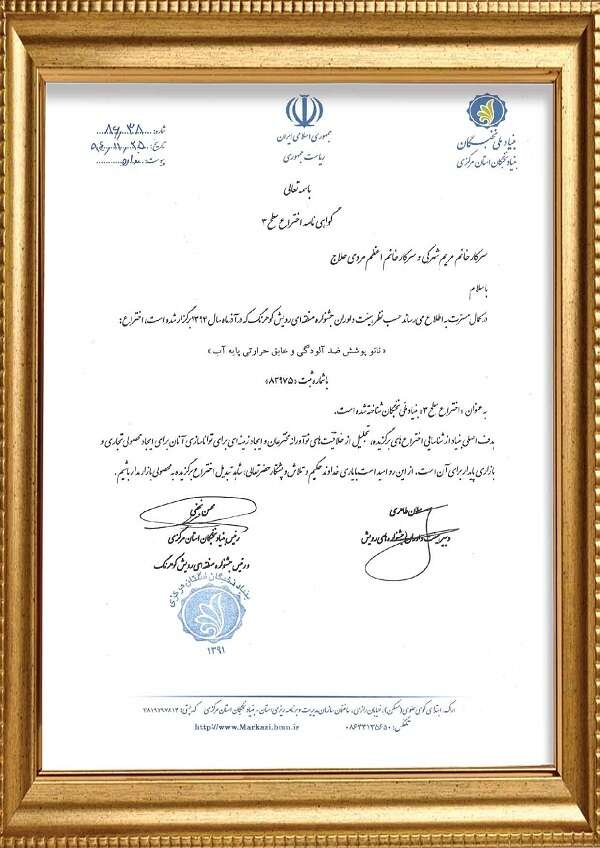 جمهوری اسلامی ایران
ریاست جمهوری
بنیاد ملی نخبگان
بنیاد نخبگان استان مرکزی
شماره:
تاریخ:
پیوست: ندارد
باسمه تعالی
گواهی نامه اختراع سطح ۳
سرکار خانم مریم شهرکی و سرکار خانم اعظم مردی حلاج
با سلام
در کمال مسرت به اطلاع می رساند حسب نظر هیئت داوران جشنواره منطقه ای رویش کوهرنگ که در آذر ماه سال ۱۳۹۴ برگزار شده است، اختراع:
« نانو پوشش ضد آلودگی و عایق حرارتی پایه آب »
با شماره ثبت «۸۲۹۷۵»
به عنوان «اختراع سطح ۳» بنیاد ملی نخبگان شناخته شده است.
هدف اصلی بنیاد از شناسایی اختراع های برگزیده، تجلیل از خلاقیت های نوآورانه مخترعان و ایجاد زمینه ای برای توانمندسازی آنان برای ایجاد محصولی تجاری و
بازاری پایدار برای آن است. از این رو امید است با یاری خداوند حکیم و تلاش و پشتکار حضرتعالی، شاهد تبدیل اختراع برگزیده به محصولی بازار مدار باشیم.
طاهری
دبیر هیئت داوران جشنواره های رویش
محسن
رئیس بنیاد نخبگان استان مرکزی
و رئیس جشنواره منطقه ای رویش کوهرنگ
بنیاد نخبگان استان مرکزی
۱۳۹۱
اراک، ابتدای کوی علوی (مسکن)، خیابان رازی، ساختمان سازمان مدیریت و برنامه ریزی استان - بنیاد نخبگان استان مرکزی کد پستی: ۳۸۱۹۷۹۷۸۱۳
تلفکس: ۰۸۶۳۳۱۳۵۶۵۰
http://www.Markazi.bmn.ir